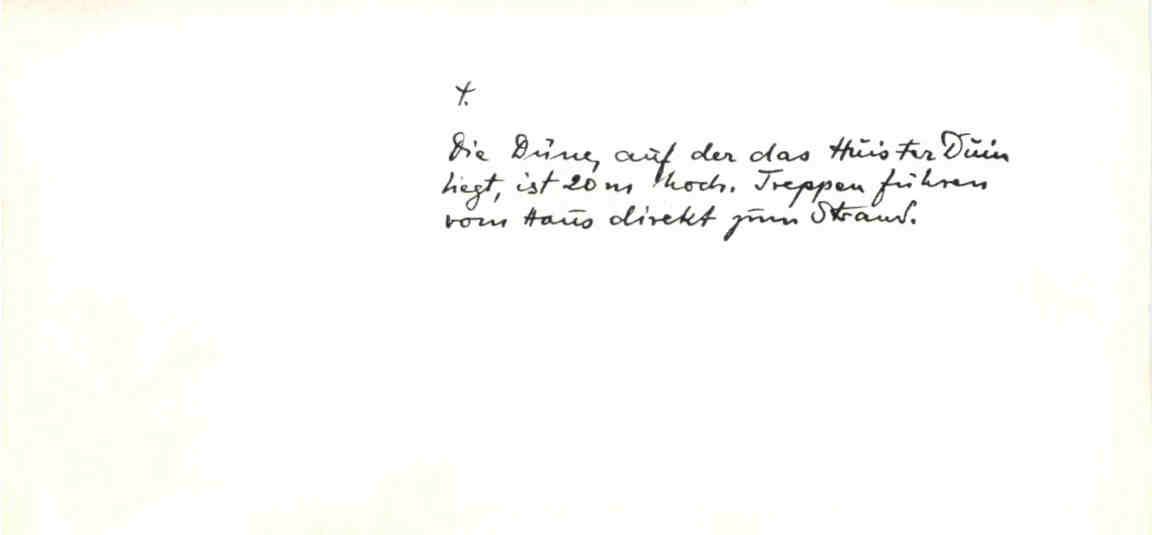 X.
Die Düne, auf der das Huis ter Duin
liegt, ist 20 m hoch. Treppen führen
vom Haus direkt zum Strand.